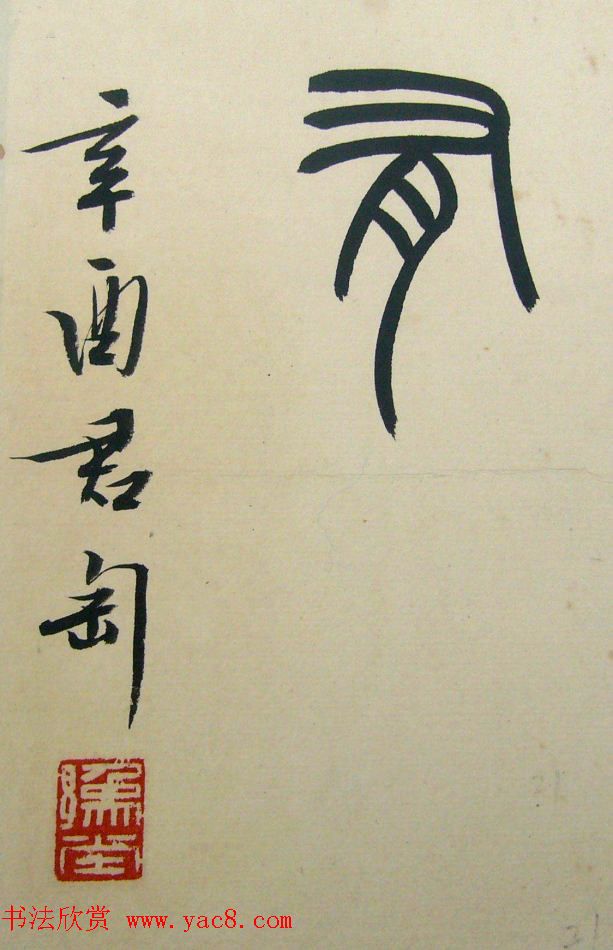 有
辛酉君匋
书法欣赏 www.yac8.com
21